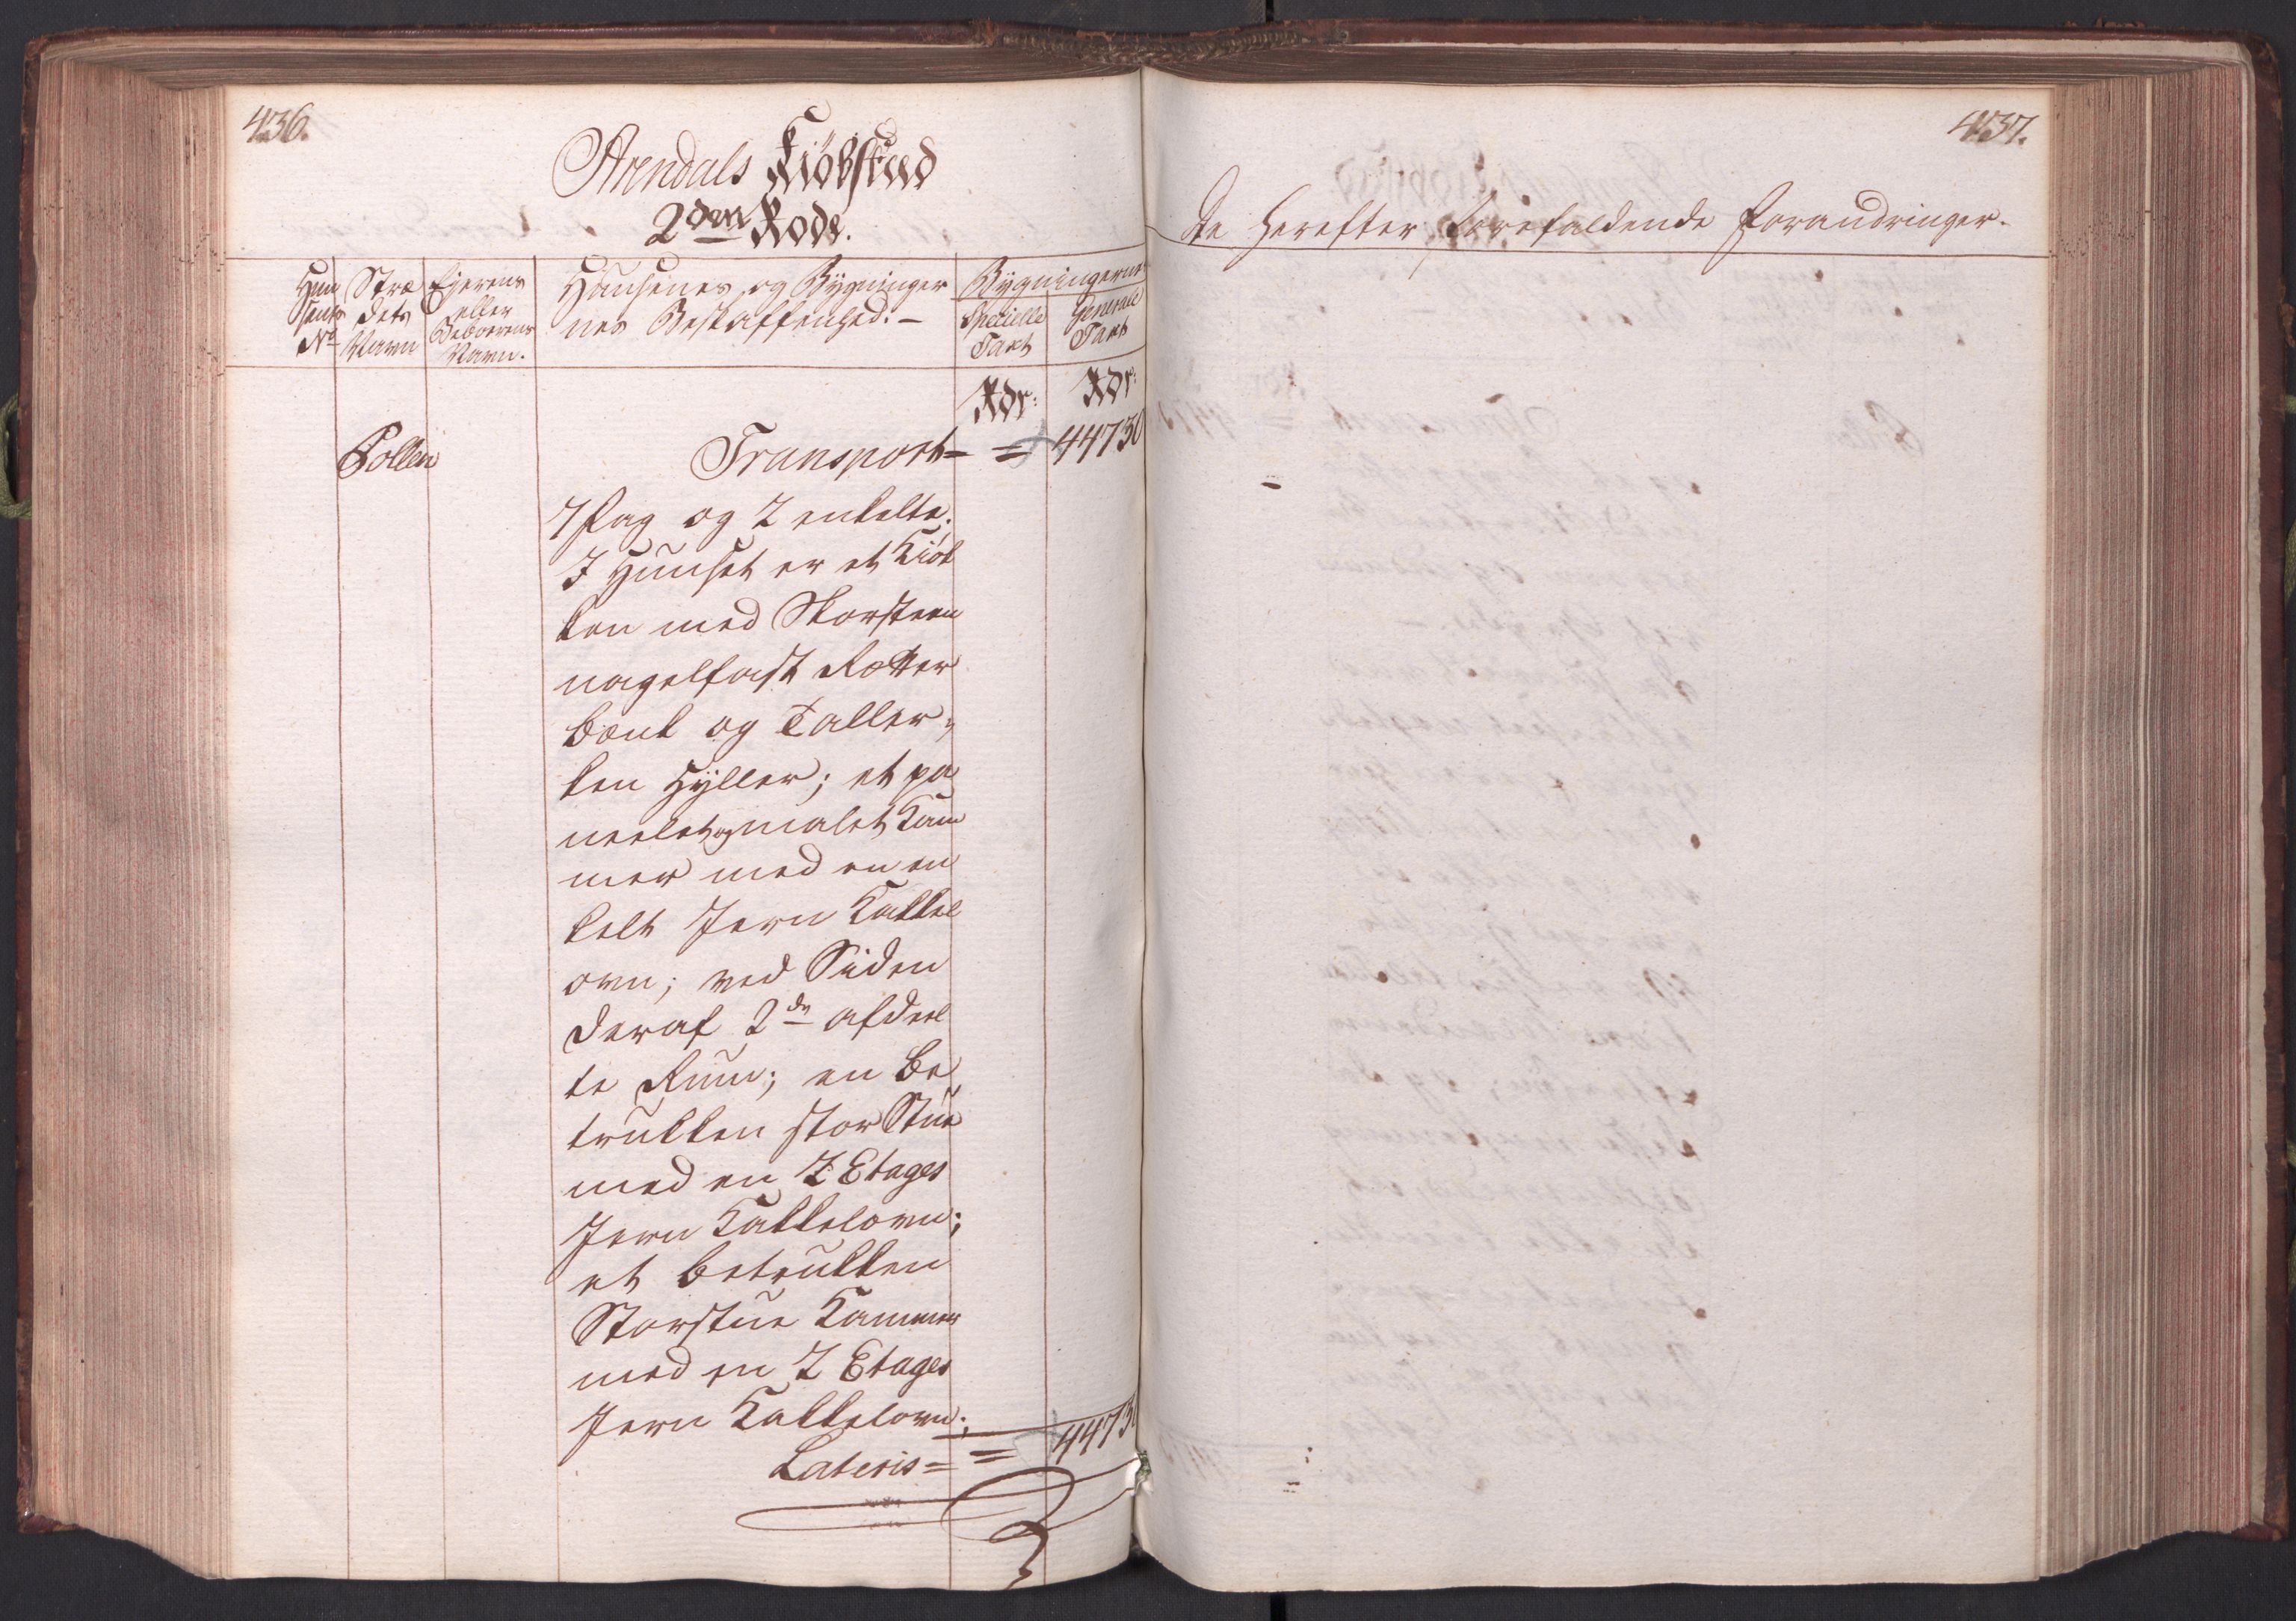 436.
Arendals Kiøbstad
2den Rode.
Huu
sents
No
Stræ
dets
Navn
Ejerens
eller
Beboerens
Navn.
Hausenes og Bygninger
nes Beskaffenhed. -
Bygningerne
Specielle
Taxt
Generale
Taxt
Rdr: Rdr:
Pollen Transport = = 44750
7 Fag og 2 enkelte.
I Huuset er et Kiøk
ken med Skorsteen
nagelfast Rætter
bænk og Taller,,
ken Hyller; et pa
neelet og malet Kam
mer med en en
kelt Jern Kakkel
ovn; ved Siden
deraf 2de afdeel
te Rum; en be
trukken stor Stue
med en 2 Etages
Jern Kakkelovn;
et betrukken
Storstue Kammer
med en 2 Etages
Jern Kakkelovn;
Lateris = = 44750
437.
de herefter forefaldende Forandringer.